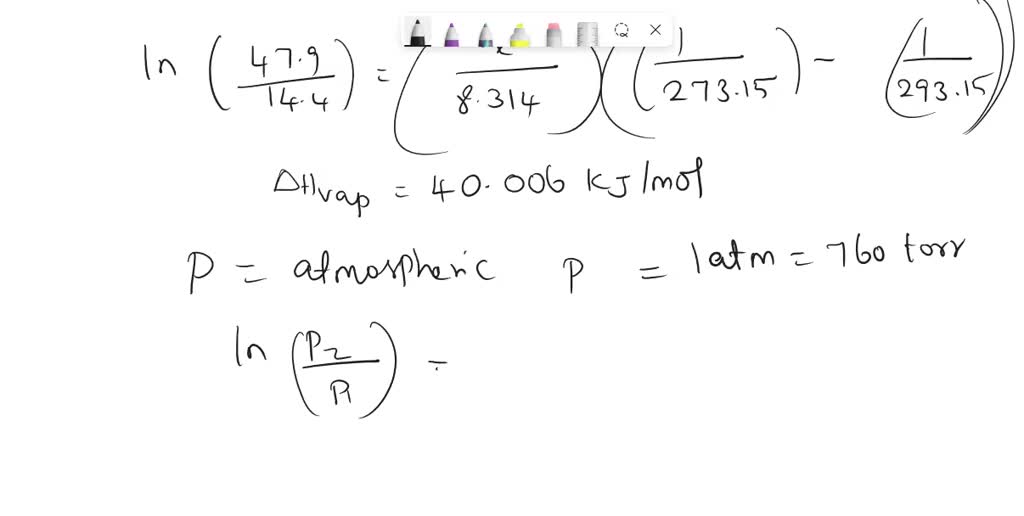 ln ( 47.9 / 14.4 ) = ( / 8.314 ) ( ( 1 / 273.15 ) - ( 1 / 293.15 ) )
ΔHvap = 40.006 KJ/mol
P = atmospheric P = 1atm = 760 torr
ln ( P2 / P1 ) =